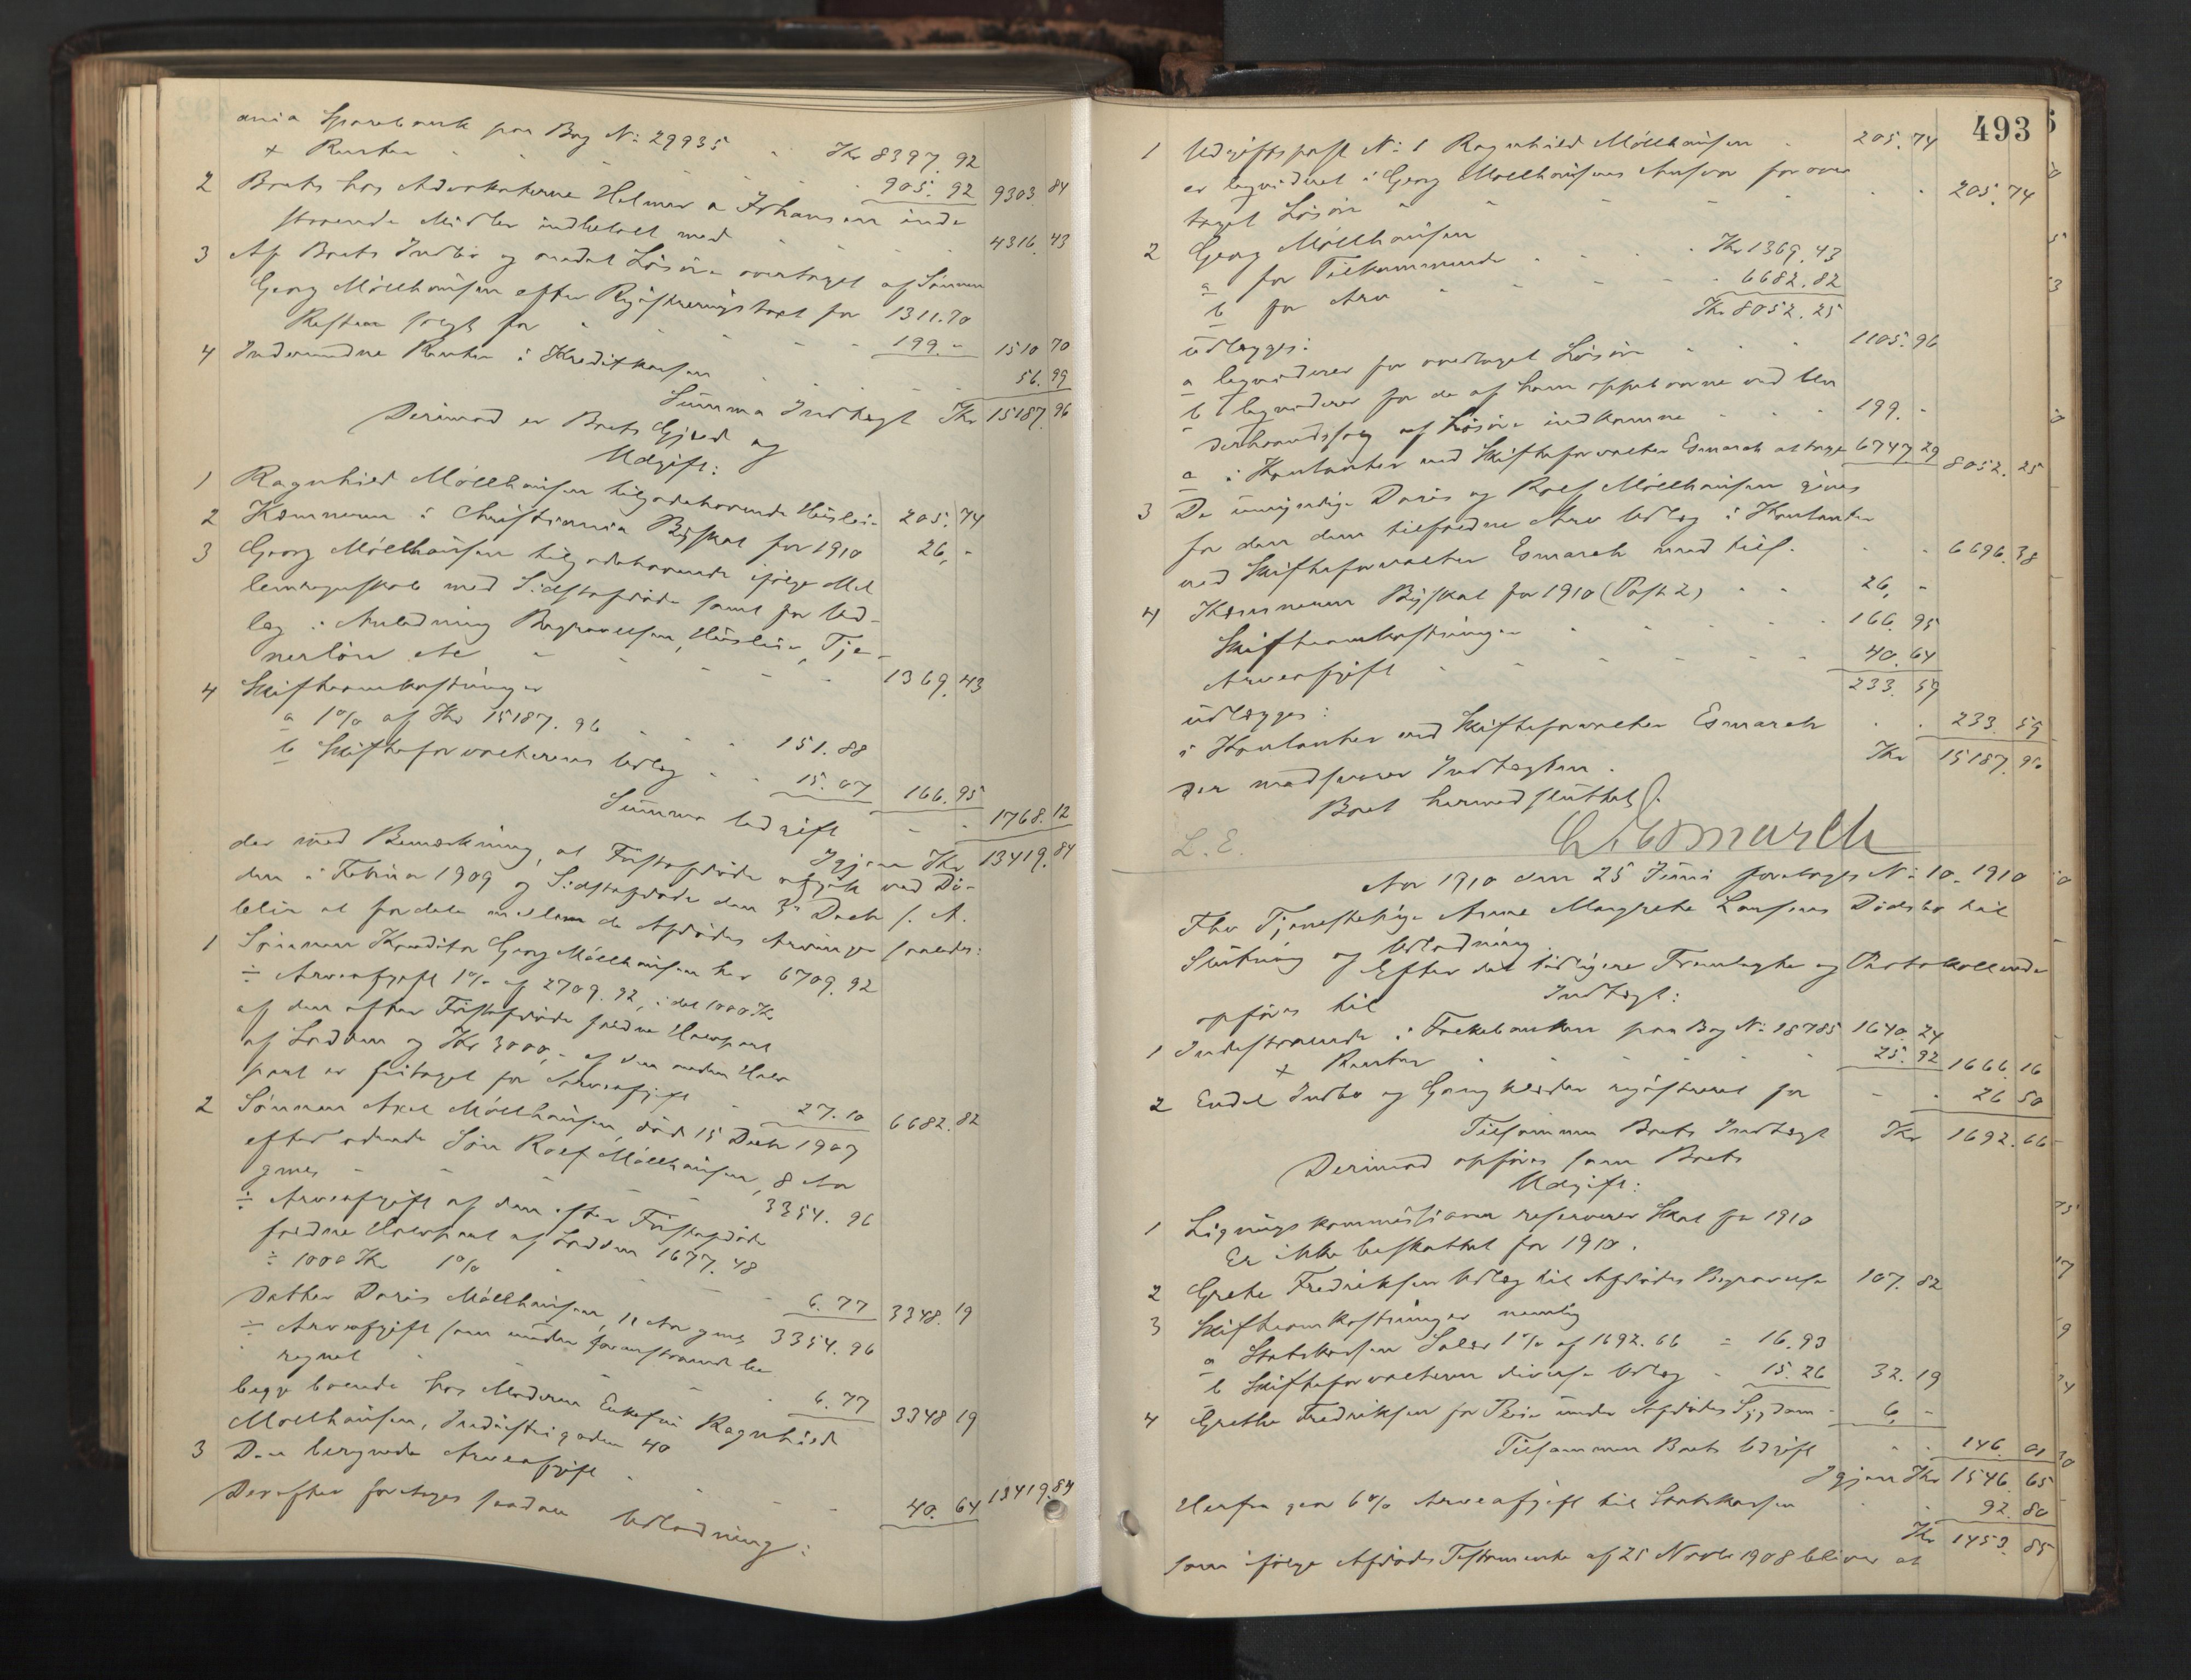 ania Sparebank paa Bog No: 29935 " Kr 8397. 92
+ Renter " " " " 905. 92 9303. 84
2 Boets hos Advokaterne Helmer & Johansen inde
staaende Midler indbetalt med " " " 4316. 43
3 Af Boets Indbo og andet Løsøre overtaget af Sønnen
Georg Möllhausen efter Registreringstaxt for 1311.70
Resten solgt for " " " " 199. " 1510 70
4 Indvundne Renter i Kreditkassen " " " 56. 99
Summa Indtægt Kr 15187. 96
Derimod er Boets Gjæld og
Udgift:
1 Ragnhild Möllhausen tilgodehavende Husleie 205. 74
2 Kæmneren i Christiania Byskat for 1910 26, "
3 Georg Möllhausen tilgodehavende ifølge Mel
lemregnskab med Sidstafdøde samt for Ud-
læg i Anledning Begravelsen, Husleie, Tje-
nerløn etc " " " " " 1369. 43
4 Skifteomkostninger
a 1% af Kr 15187. 96 " " " 151. 88
b Skifteforvalterens Udlæg " " 15. 07 166. 95
Summa Udgift " " 1768. 12
Igjen Kr 13419. 84
der med Bemærkning, at Førstafdøde afgik ved Dø-
den i Februar 1909 og Sidstafdøde den 3die Decbr s. A.
blir at fordele mellem de Afdødes Arvinger saaledes:
1 Sønnen Konditor Georg Möllhausen har 6709. 92
÷ Arveafgift 1% af 2709. 92, idet 1000 Kr
af den efter Førstafdøde faldne Halvpart
af Lodden og Kr 3000,- af den anden Halv
part er fritaget for Arveafgift " 27. 10 6682. 82
2 Sønnen Axel Möllhausen, død 15 Decbr 1907
efterladende Søn Rolf Möllhausen, 8 Aar
gml " " " " " 3354. 96
÷ Arveafgift af den efter Førstafdøde
faldne Halvpart af Lodden 1677. 48
÷ 1000 Kr 1% " " " 6. 77 3348. 19
Datter Doris Möllhausen, 11 Aar gml 3354. 96
÷ Arveafgift som under foranstaaende be
regnet " " " " 6. 77 3348 19
begge boende hos Moderen Enkefru Ragnhild
Möllhausen, Industrigaden 40
3 Den beregnede Arveafgift " " " 40. 64 13419. 84
Derefter foretages saadan Udlodning:
493
1 Udgiftspost No: 1 Ragnhild Möllhausen " 205. 74
er liqvideret i Georg Möllhausens Ansvar for over
taget Løsøre " " " " " 205. 74
2 Georg Möllhausen
a for Tilkommende " " " Kr 1369. 43
b for Arv " " " " 6682. 82
Kr 8052. 25
udlægges:
a liqviderer for overtaget Løsøre " " " 1105. 96
b liqviderer for de af ham oppebaarne ved Un
derhaandssalg af Løsøre indkomne " " " 199. "
c i Kontanter ved Skifteforvalter Esmarch at hæve 6747 29 8052. 25
3 De umyndige Doris og Rolf Möllhausen gives
for den dem tilfaldne Arv Udlæg i Kontanter
ved Skifteforvalter Esmarch med tils. " " 6696. 38
4 Kæmneren Byskat for 1910 (Post 2) " " 26, "
Skifteomkostninger " " " " 166. 95
Arveafgift " " " " " 40. 64
233. 59
udlægges:
i Kontanter ved Skifteforvalter Esmarch " " 233. 59
Kr 15187. 96
der modsvarer Indtægten.
Boet hermed sluttet.
L. E.
Esmarch
Aar 1910 den 25 Juni foretoges No: 10-1910
Fhv Tjenestepige Anne Margrete Larsens Dødsbo til
Slutning og Udlodning.
Efter det tidligere Fremlagte og Protokollerede
opføres til
Indtægt:
1 Indestaaende i Folkebanken paa Bog No: 18785 1640. 24
+ Renter " " " " " 25. 92 1666. 16
2 Endel Indbo og Gangklæder registreret for " " 26 50
Tilsammen Boets Indtægt Kr 1692. 66
Derimod opføres som Boets
Udgift:
1 Ligningskommissionen reserverer Skat for 1910
Er ikke beskattet for 1910.
2 Grethe Fredriksen Udlæg til Afdødes Begravelse 107. 82
3 Skifteomkostninger nemlig
a Statskassen Salær 1% af 1692. 66 = 16. 93
b Skifteforvalteren diverse Udlæg " 15. 26 32. 19
4 Grethe Fredriksen for Pleie under Afdødes Sygdom " 6, "
Tilsammen Boets Udgift " " 146. 01
Igjen Kr 1546. 65
Herfra gaar 6% Arveafgift til Statskassen " 92. 80
Kr 1453. 85
som ifølge Afdødes Testamente af 25 Novbr 1908 bliver at